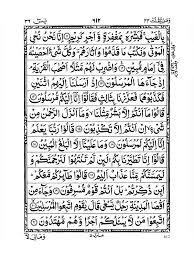 ومالی ۲۳
یٰس ۳۶
بِالْغَيْبِ فَبَشِّرْهُ بِمَغْفِرَةٍ وَّاَجْرٍ كَرِيْمٍ اِنَّا نَحْنُ نُحْيِ
الْمَوْتٰى وَنَكْتُبُ مَا قَدَّمُوْا وَاٰثَارَهُمْ وَكُلَّ شَيْءٍ اَحْصَيْنٰهُ
فِيْٓ اِمَامٍ مُّبِيْنٍ وَاضْرِبْ لَهُمْ مَّثَلًا اَصْحٰبَ الْقَرْيَةِ
اِذْ جَآءَهَا الْمُرْسَلُوْنَ اِذْ اَرْسَلْنَآ اِلَيْهِمُ اثْنَيْنِ
فَكَذَّبُوْهُمَا فَعَزَّزْنَا بِثَالِثٍ فَقَالُوْٓا اِنَّآ اِلَيْكُمْ مُّرْسَلُوْنَ
قَالُوْا مَآ اَنْتُمْ اِلَّا بَشَرٌ مِّثْلُنَا وَمَآ اَنْزَلَ الرَّحْمٰنُ مِنْ
شَيْءٍ اِنْ اَنْتُمْ اِلَّا تَكْذِبُوْنَ قَالُوْا رَبُّنَا يَعْلَمُ
اِنَّآ اِلَيْكُمْ لَمُرْسَلُوْنَ وَمَا عَلَيْنَآ اِلَّا الْبَلٰغُ الْمُبِيْنُ
قَالُوْٓا اِنَّا تَطَيَّرْنَا بِكُمْ لَئِنْ لَّمْ تَنْتَهُوْا لَنَرْجُمَنَّكُمْ وَ
لَيَمَسَّنَّكُمْ مِّنَّا عَذَابٌ اَلِيْمٌ قَالُوْا طَآئِرُكُمْ مَّعَكُمْ
اَئِنْ ذُكِّرْتُمْ بَلْ اَنْتُمْ قَوْمٌ مُّسْرِفُوْنَ وَجَآءَ مِنْ
اَقْصَا الْمَدِيْنَةِ رَجُلٌ يَّسْعٰى قَالَ يٰقَوْمِ اتَّبِعُوا الْمُرْسَلِيْنَ
اتَّبِعُوْا مَنْ لَّا يَسْـَٔلُكُمْ اَجْرًا وَّهُمْ مُّهْتَدُوْنَ